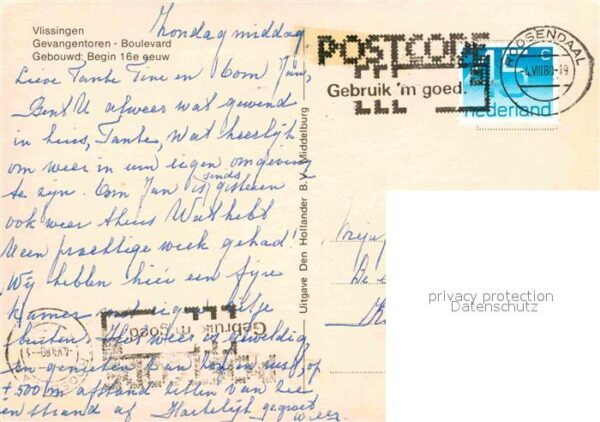 Vlissingen
Gevangentoren - Boulevard
Gebouwd: Begin 16e eeuw
Zondagmiddag
Lieve Tante Tine en Oom Jan,
Bent U alweer wat gewend
in huis, Tante, Wat heerlijk
om weer in uw eigen omgeving
te zijn. Oom Jan is sinds gisteren
ook weer thuis Wat hebt
U een prachtige week gehad!
Wij hebben hier een fijne
kamer
buiten. Het weer is geweldig
en genieten van zon en rust, op
± 500 m afstand zitten van zee
en strand af Hartelijk gegroet
weer.
POSTCODE
Gebruik 'm goed.
ROOSENDAAL
-4.VIII.80-19
nederland
Uitgave Den Hollander B.V. Middelburg
privacy protection
Datenschutz
POSTCODE
Gebruik 'm goed